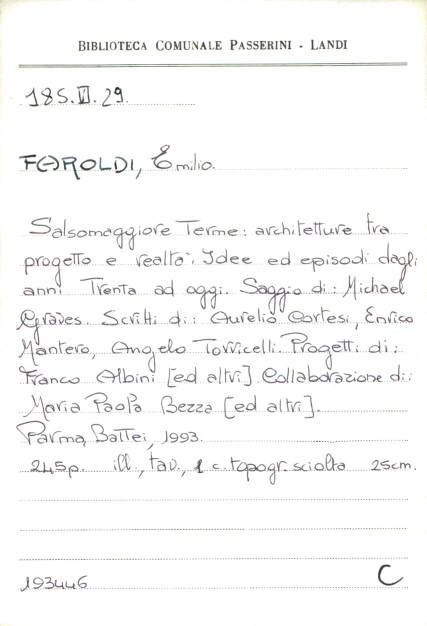 BIBLIOTECA COMUNALE PASSERINI - LANDI
185.VI.29.
FAROLDI, Emilio.
Salsomaggiore Terme: architetture tra
progetto e realtà. Idee ed episodi dagli
anni Trenta ad oggi. Saggio di: Michael
Graves. Scritti di: Aurelio Cortesi, Enrico
Mantero, Angelo Torricelli. Progetti di:
Franco Albini [ed altri]. Collaborazione di:
Maria Paola Bezza [ed altri].
Parma, Battei, 1993.
245p. ill., tav., 1 c. topogr. sciolta 25cm.
193446 C